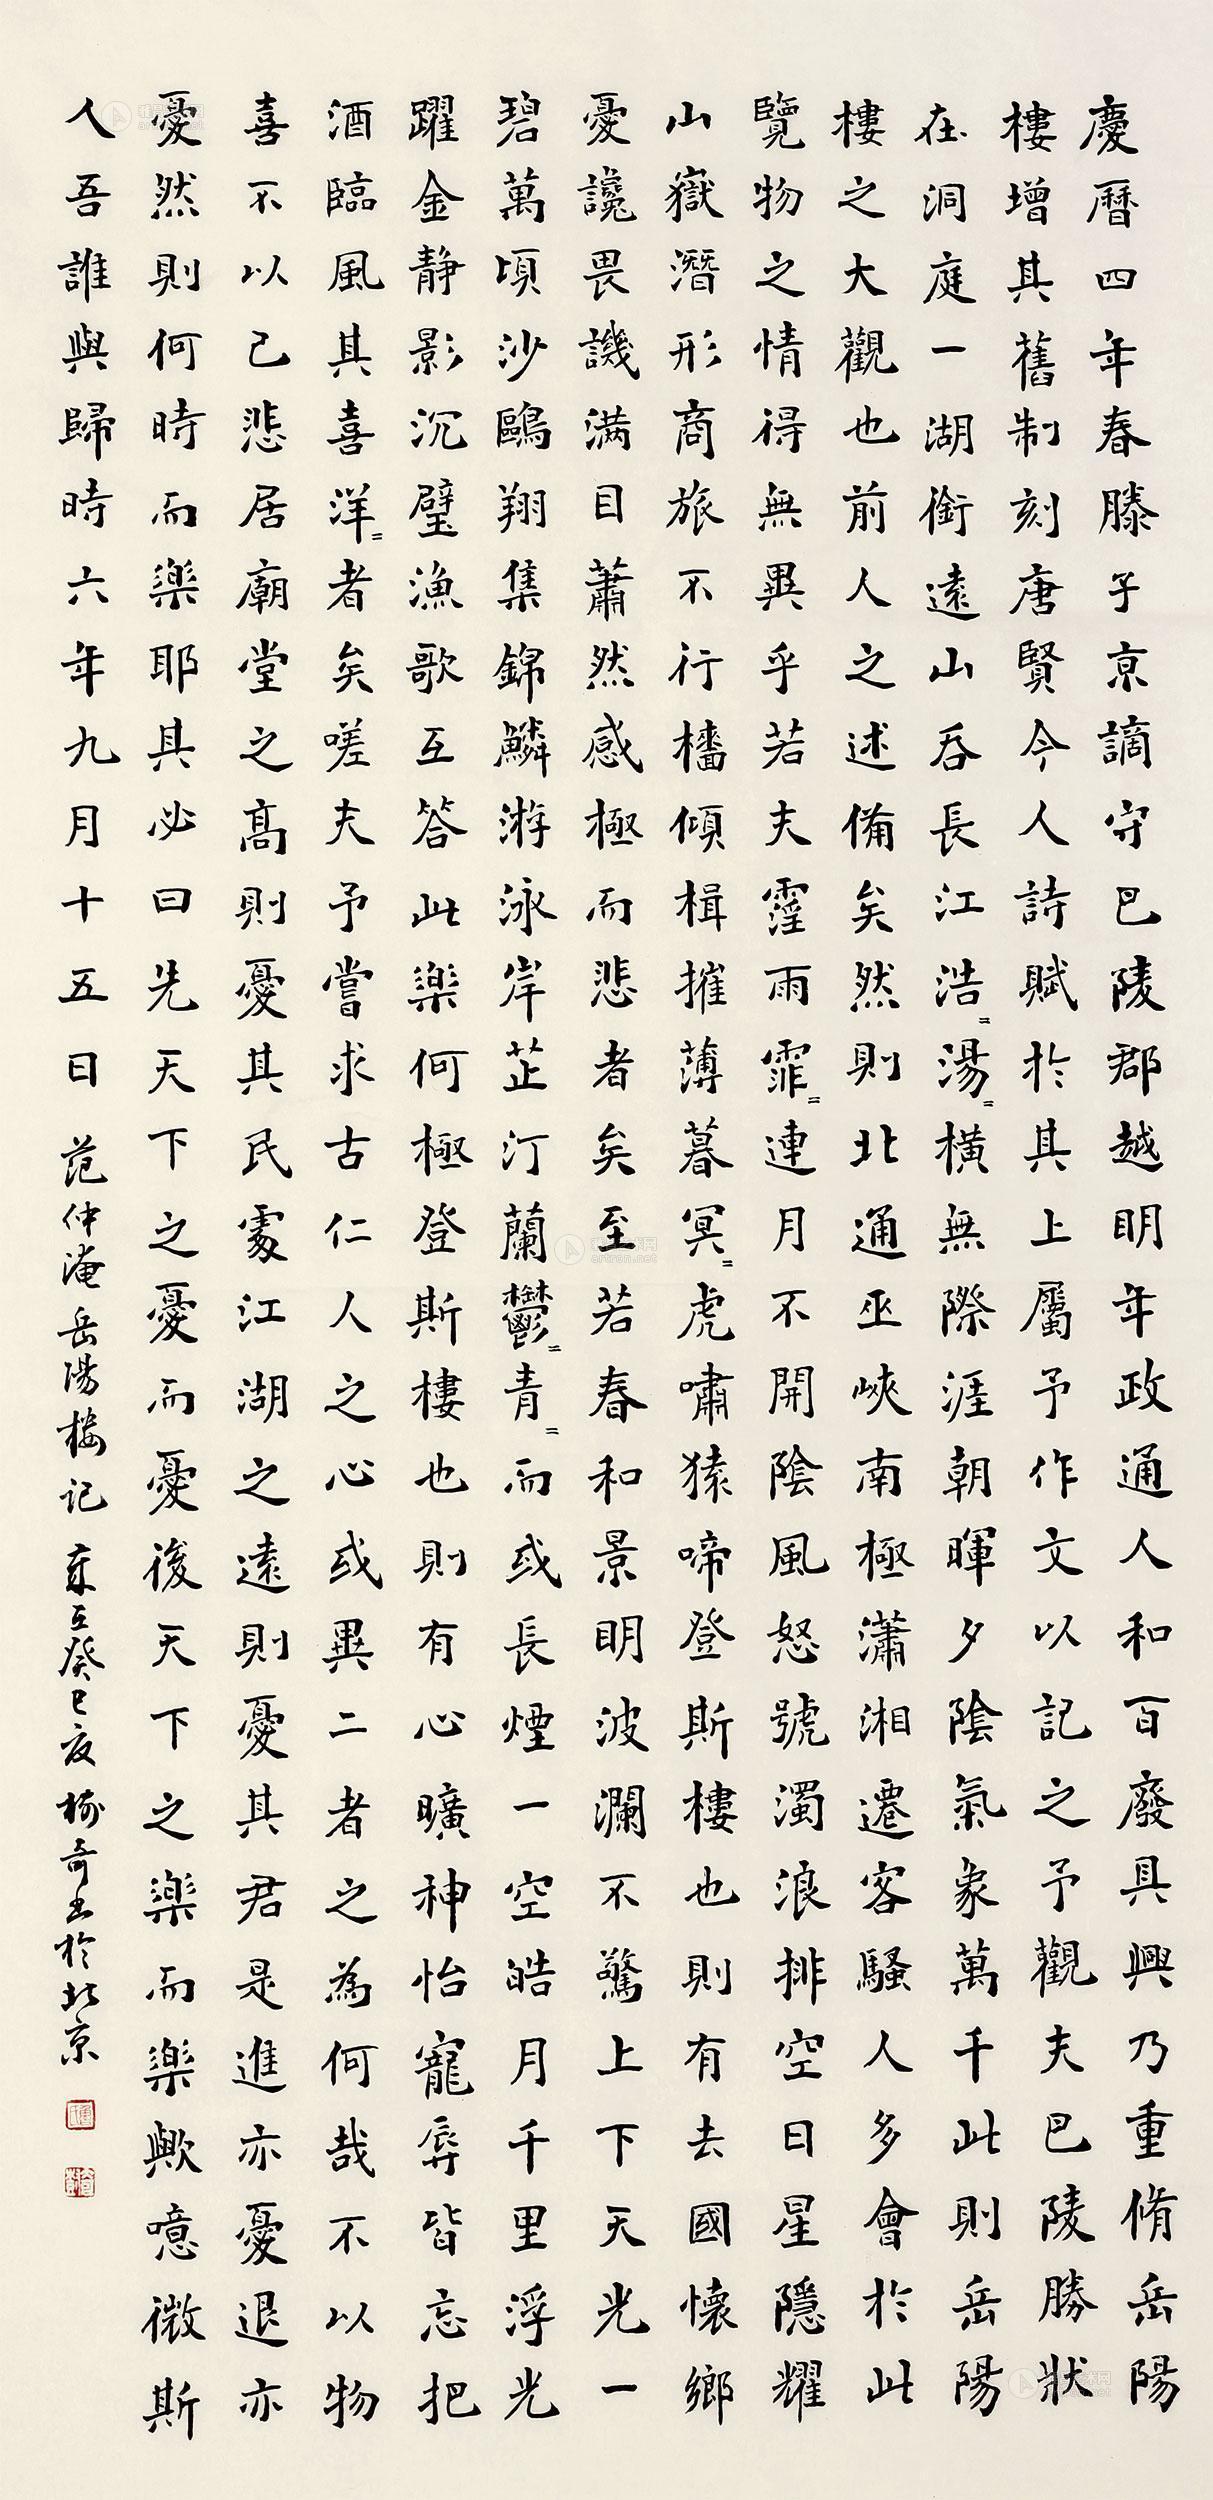 慶曆四年春滕子京謫守巴陵郡越明年政通人和百廢具興乃重脩岳陽
樓增其舊制刻唐賢今人詩賦於其上屬予作文以記之予觀夫巴陵勝狀
在洞庭一湖銜遠山吞長江浩〻湯〻橫無際涯朝暉夕陰氣象萬千此則岳陽
樓之大觀也前人之述備矣然則北通巫峽南極瀟湘遷客騷人多會於此
覽物之情得無異乎若夫霪雨霏〻連月不開陰風怒號濁浪排空日星隱耀
山嶽潛形商旅不行檣傾楫摧薄暮冥〻虎嘯猿啼登斯樓也則有去國懷鄉
憂讒畏譏滿目蕭然感極而悲者矣至若春和景明波瀾不驚上下天光一
碧萬頃沙鷗翔集錦鱗游泳岸芷汀蘭鬱〻青〻而或長煙一空皓月千里浮光
躍金靜影沉璧漁歌互答此樂何極登斯樓也則有心曠神怡寵辱皆忘把
酒臨風其喜洋〻者矣嗟夫予嘗求古仁人之心或異二者之為何哉不以物
喜不以己悲居廟堂之高則憂其民處江湖之遠則憂其君是進亦憂退亦
憂然則何時而樂耶其必曰先天下之憂而憂後天下之樂而樂歟噫微斯
人吾誰與歸時六年九月十五日 范仲淹岳陽樓記 癸巳夏 奇書於北京